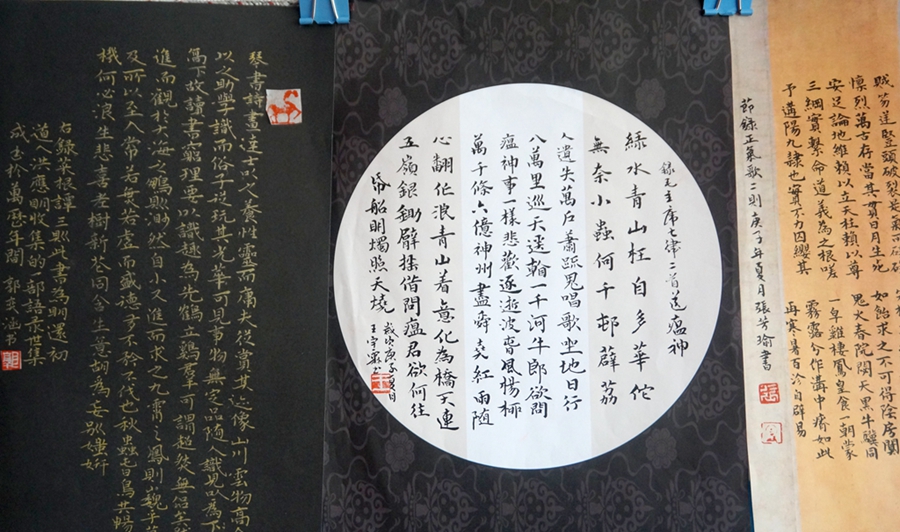 逆豎頭破裂是氣所
凜烈萬古存當其貫日月生死
安足論地維賴以立天柱賴以尊
三綱實繫命道義為之根嗟
予遘陽九隸也實不力因纓其
如飴求之不可得陰房闃
鬼火春院閟天黑牛驥同
皁雞棲鳳皇食一朝蒙
霧露分作溝中瘠如此
再寒暑百沴自辟易
節錄正氣歌二則庚子年夏月張芳瑜書
錄毛主席七律二首送瘟神
綠水青山枉自多華佗
無奈小蟲何千邨薜荔
人遺失萬戶蕭疏鬼唱歌坐地日行
八萬里巡天遙一千河牛郎欲問
瘟神事一樣悲歡逐逝波春風楊柳
萬千條六億神州盡舜堯紅雨隨
心翻作浪青山着意化為橋天連
五嶺銀鋤臂搖借問瘟君欲何往
船明燭照天燒
歲次庚子夏月
王宇
琴書詩畫達士以之養性靈而庸夫賞其迹像山川雲物高
以之助學識而俗子玩其光華可見事物無定品隨人識見以為下
寫下故讀書窮理要以識趣為先鶴立鷄羣可謂超然無侶矣
進而觀於大海之鵬則渺然自小又進而求之九霄之鳳則巍乎
及所以至人常若無若虛而盛德多不矜不伐也秋蟲春鳥共暢
機何必浪生悲喜老樹新花同含生意胡為妄別媸妍
右錄菜根譚三則此書為明還初
道人洪應明收集的一部語錄世集
成書於萬歷年間